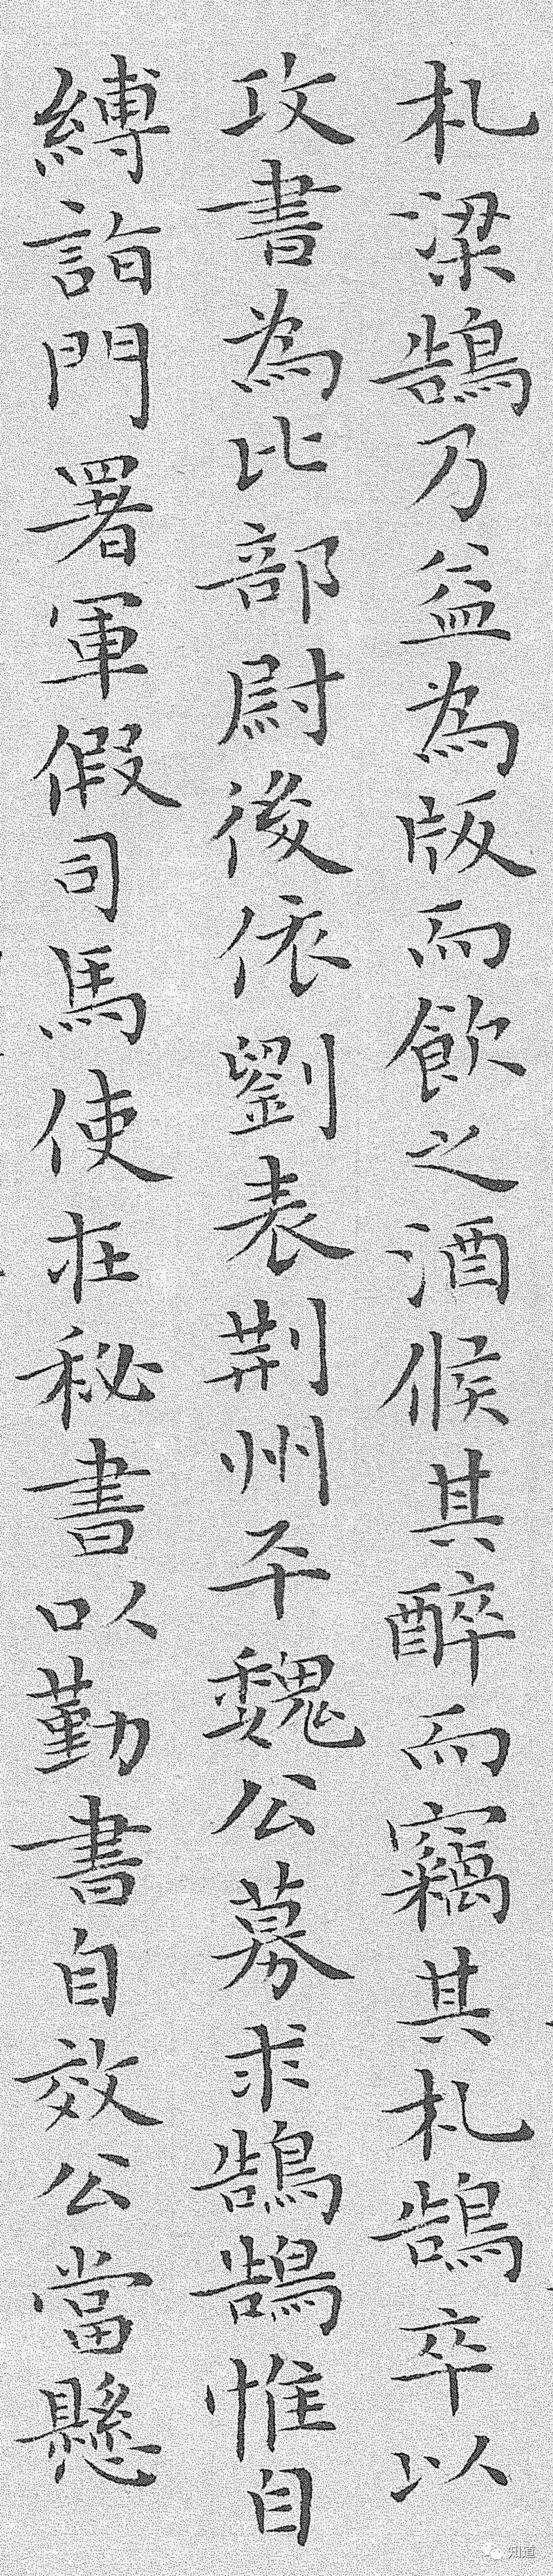 札梁鵠乃益為版而飲之酒候其醉而竊其札鵠卒以
攻書為比部尉後依劉表荆州平魏公募求鵠鵠惟自
縛詣門署軍假司馬使在秘書以勤書自效公當懸
知道